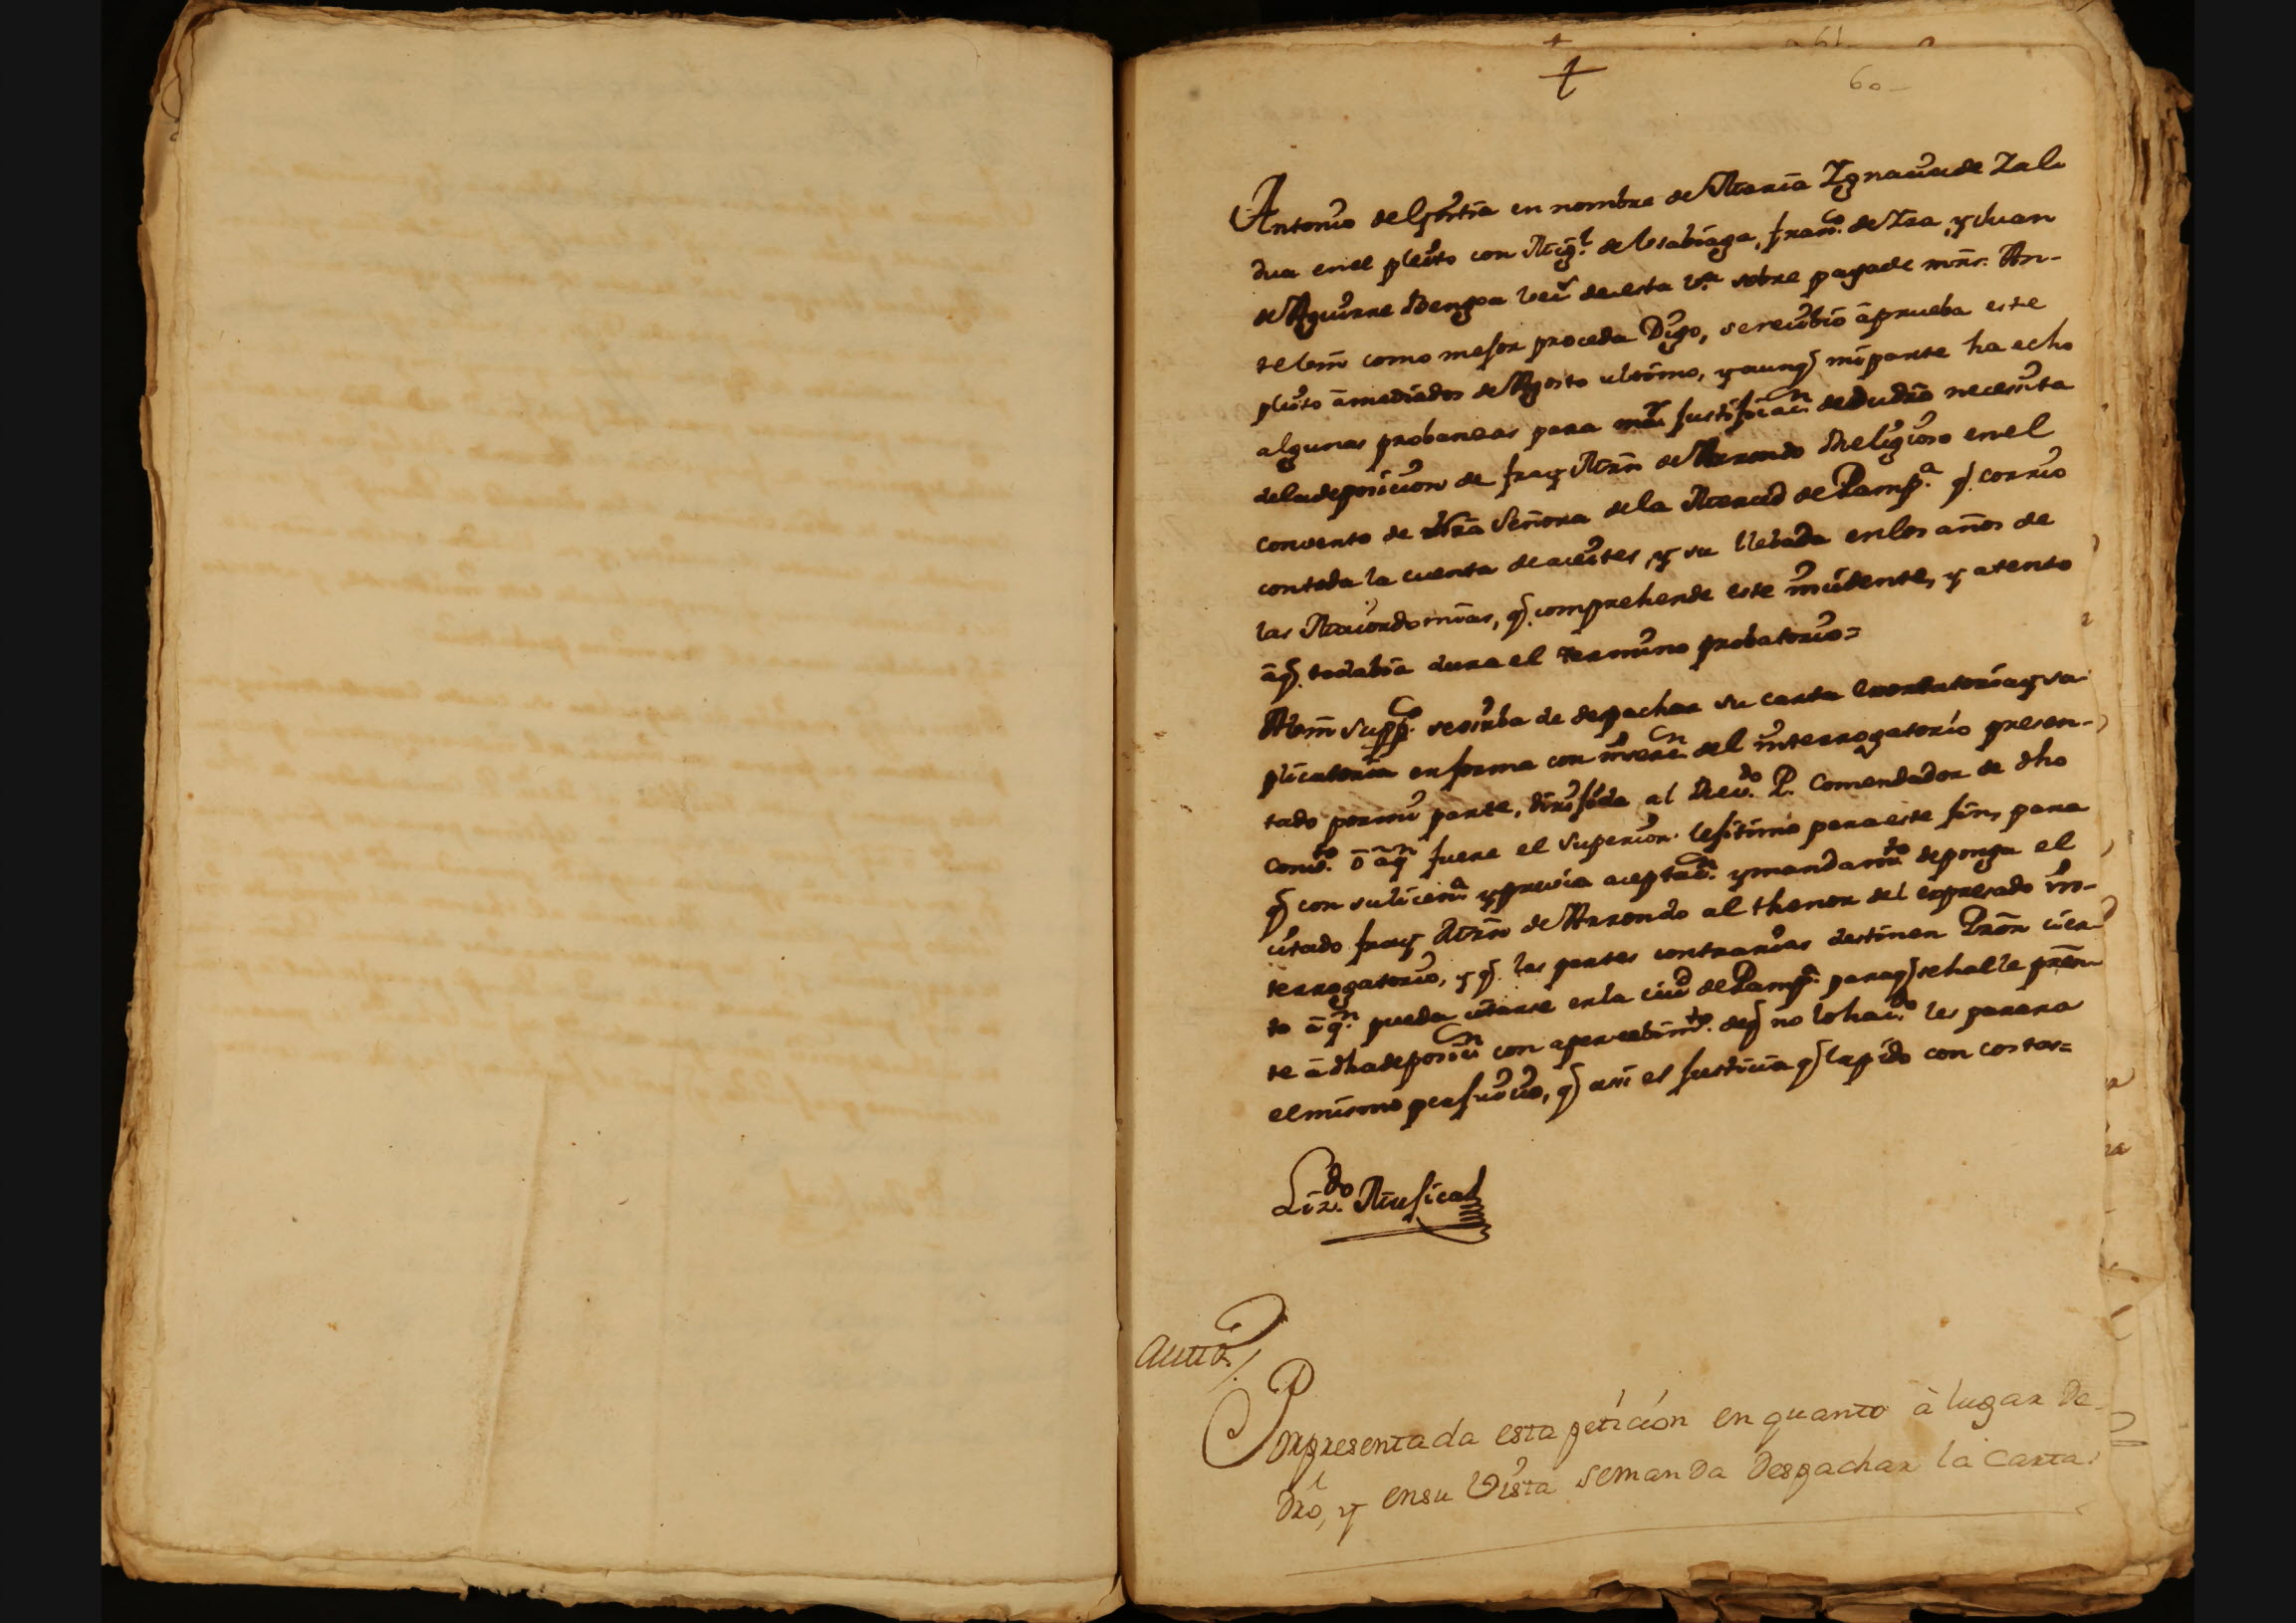 60
Antonio de Gorttia en nombre de Maria Ygnacia de Zal-
dua en el pleito con Mig.l de Usabiaga, fran.co de Yza, y Juan
de Aguirre Bengoa vec.s de esta v.a sobre paga de mrs. An-
te Vm como mejor proceda Digo, se recibio à prueba este
pleito à mediados de Agosto ultimo, y aunq mi parte ha echo
algunas probanzas para mas justificacn de su dro necesita
de la deposicion de fray Mrn de Arrondo Religioso en el
convento de Nra Señora de la Merced de Pamp.a q. corrio
con toda la cuenta de aceites, y su llebada en los años de
las Maiordomias, q. comprehende este incidente, y atento
àq. todabia dura el termino probatorio=
A Vm supp.co se sirba de despachar su carta exortatoria y su-
plicatoria en forma con insercn del interrogatorio presen-
tado por mi parte, dirijida al Revdo. P. Comendador de dho
Convto. ò àqn fuere el Superior lejitimo para este fin, para
q con su licena y previa aceptacn. y mandamto deponga el
citado fray Mrn de Arrondo al thenor del expresado in-
terrogatorio, y q. las partes contrarias destinen Prôn cier-
to à qn. pueda citarse en la ciud de Pamp.a para q se halle presen-
te à dha deposicn con apercebimto. de q no lo hacdo. les parara
el mismo perjuicio, q asi es justicia q la pido con costas=
Lizdo. Mujica
Auto /.
Por presentada esta peticion en quanto à lugar de
dro, y en su Vista se manda Despachar la Carta